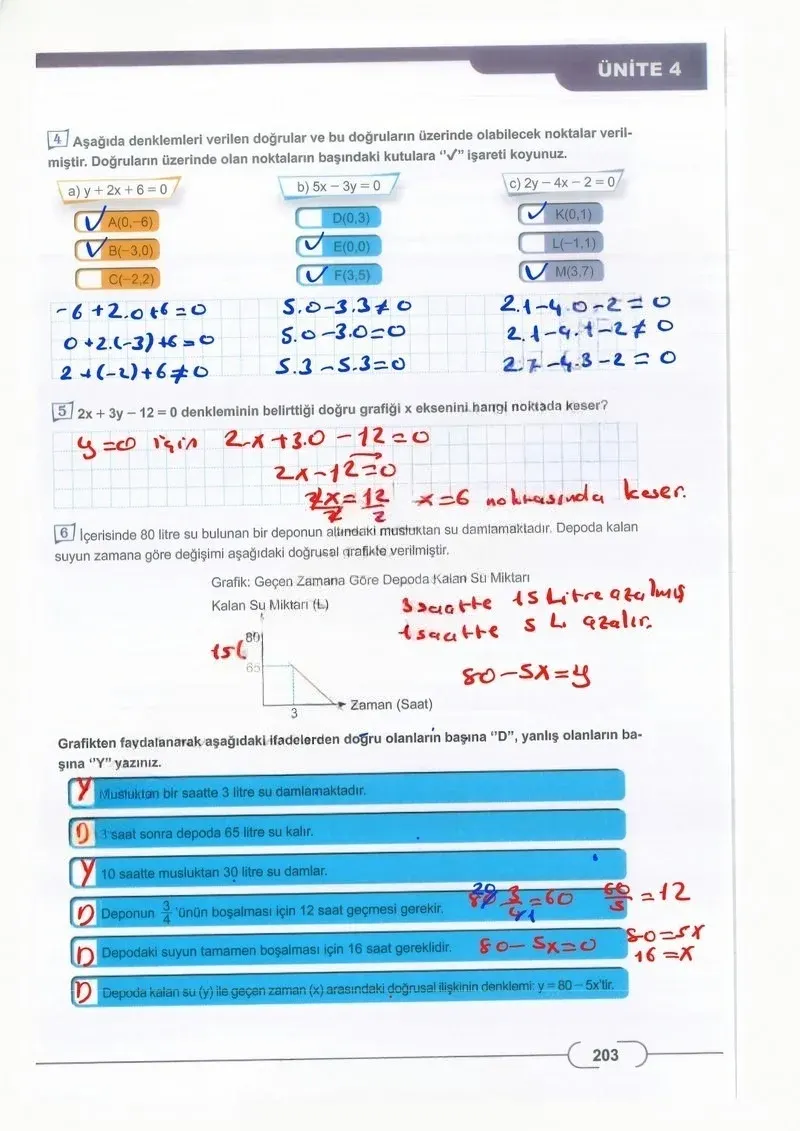 ÜNİTE 4
4 Aşağıda denklemleri verilen doğrular ve bu doğruların üzerinde olabilecek noktalar veril-
miştir. Doğruların üzerinde olan noktaların başındaki kutulara "✓" işareti koyunuz.
a) y + 2x + 6 = 0
✓ A(0,–6)
✓ B(–3,0)
C(–2,2)
b) 5x – 3y = 0
D(0,3)
✓ E(0,0)
✓ F(3,5)
c) 2y – 4x – 2 = 0
✓ K(0,1)
L(–1,1)
✓ M(3,7)
-6+2.0+6=0
0+2.(-3)+6=0
2+(-2)+6≠0
5.0-3.3≠0
5.0-3.0=0
5.3-5.3=0
2.1-4.0-2=0
2.1-4.1-2≠0
2.7-4.3-2=0
5 2x + 3y – 12 = 0 denkleminin belirttiği doğru grafiği x eksenini hangi noktada keser?
y=0 için 2x+3.0-12=0
2x-12=0
2x/2=12/2 x=6 noktasında keser.
6 İçerisinde 80 litre su bulunan bir deponun altındaki musluktan su damlamaktadır. Depoda kalan
suyun zamana göre değişimi aşağıdaki doğrusal grafikte verilmiştir.
Grafik: Geçen Zamana Göre Depoda Kalan Su Miktarı
Kalan Su Miktarı (L)
80
15
65
3
Zaman (Saat)
3 saatte 15 Litre azalmış
1 saatte 5 L azalır.
80-5x=y
Grafikten faydalanarak aşağıdaki ifadelerden doğru olanların başına "D", yanlış olanların ba-
şına "Y" yazınız.
Y Musluktan bir saatte 3 litre su damlamaktadır.
D 3 saat sonra depoda 65 litre su kalır.
Y 10 saatte musluktan 30 litre su damlar.
D Deponun 3/4 'ünün boşalması için 12 saat geçmesi gerekir. 20 80 3/4 1 =60 60/5 =12
D Depodaki suyun tamamen boşalması için 16 saat gereklidir. 80-5x=0 80=5x
16=x
D Depoda kalan su (y) ile geçen zaman (x) arasındaki doğrusal ilişkinin denklemi: y = 80 – 5x'tir.
203